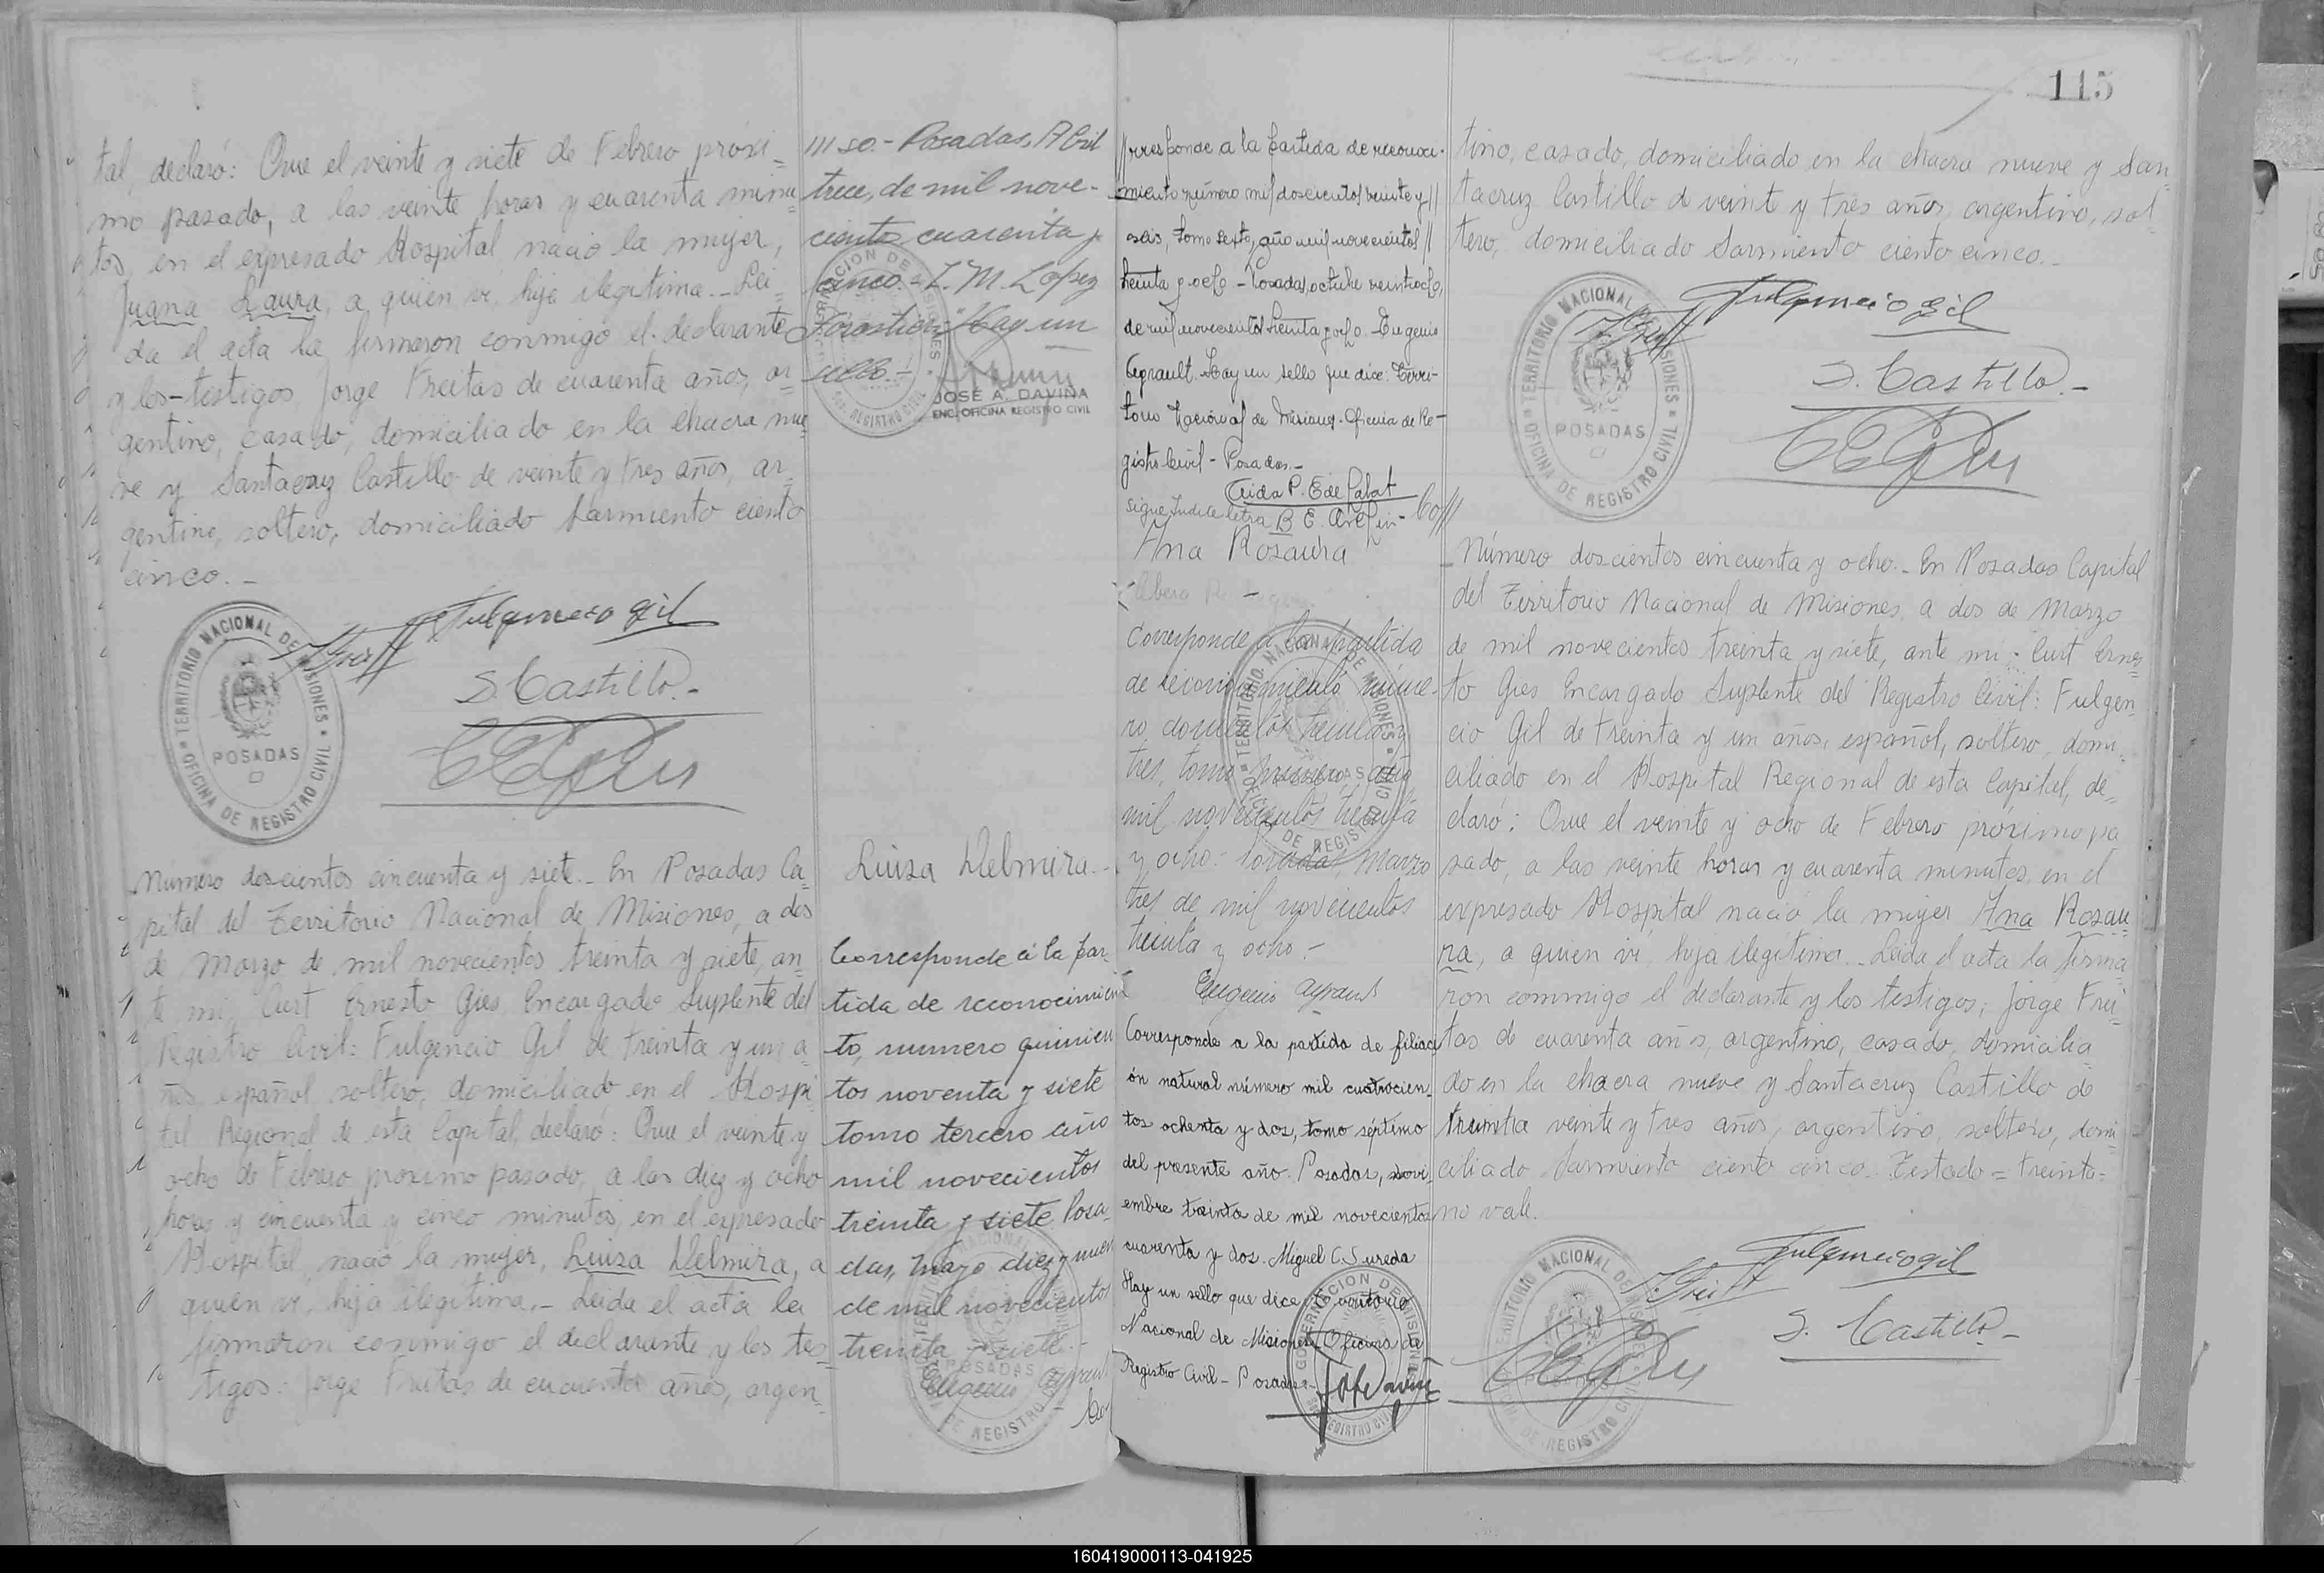 tal, declaró: Que el veinte y siete de Febrero próxi=
mo pasado, a las veinte horas y cuarenta minu
tos, en el expresado Hospital, nació la mujer,
Juana Laura, a quien vi, hija ilegítima._ Leí=
da el acta la firmaron conmigo el declarante
y los testigos, Jorge Freitas de cuarenta años, ar=
gentino, casado, domiciliado en la chacra nue
ve y Santacruz Castillo de veinte y tres años, ar=
gentino, soltero, domiciliado Sarmiento ciento
cinco._
Fulgencio Gil
S. Castillo.-
TERRITORIO NACIONAL DE MISIONES
POSADAS
OFICINA DE REGISTRO CIVIL
Posadas, Abril
trece, de mil nove-
cientos cuarenta y
cinco.- L. M. López
Forastieri Hay un
sello.-
JOSÉ A. DAVIÑA
ENC. OFICINA REGISTRO CIVIL
Número doscientos cincuenta y siete._ En Posadas Ca=
pital del Territorio Nacional de Misiones, a dos
de Marzo de mil novecientos treinta y siete, an
te mi, Curt Ernesto Gies Encargado Suplente del
Registro Civil: Fulgencio Gil de treinta y un a
ños, español, soltero, domiciliado en el Hospi
tal Regional de esta Capital, declaró: Que el veinte y
ocho de Febrero próximo pasado, a las diez y ocho
horas y cincuenta y cinco minutos, en el expresado
Hospital, nació la mujer, Luisa Delmira, a
quien vi, hija ilegítima._ Leída el acta la
firmaron conmigo el declarante y los tes=
tigos: Jorge Freitas de cuarenta años, argen=
Luisa Delmira.-
Corresponde á la par-
tida de reconocimien
to, número quinien
tos noventa y siete
tomo tercero año
mil novecientos
treinta y siete Posa-
das, mayo diez y nueve
de mil novecientos
treinta y siete.-
Eugenio Ayrault
Co//
115
//rresponde a la partida de reconoci-
miento número mil doscientos veinte y//
seis, tomo sexto, año mil novecientos//
treinta y ocho - Posadas, octubre veintiocho,
de mil novecientos treinta y ocho. Eugenio
Ayrault. Hay un sello que dice: Terri-
torio Nacional de Misiones. Oficina de Re-
gistro Civil - Posadas.-
Sigue Indice letra B
Co//
Ana Rosaura
Corresponde a la partida
de reconocimiento núme-
ro doscientos treinta y
tres, tomo primero, año
mil novecientos treinta
y ocho.- Posadas, Marzo
tres de mil novecientos
treinta y ocho.-
Eugenio Ayrault
Corresponde a la partida de filiaci
ón natural número mil cuatrocien
tos ochenta y dos, tomo séptimo
del presente año. Posadas, novi
embre treinta de mil novecientos
cuarenta y dos. Miguel C. Sureda
Hay un sello que dice: Territorio
Nacional de Misiones - Oficina de
Registro Civil - Posadas.-
tino, casado, domiciliado en la chacra nueve y San
tacruz Castillo de veinte y tres años, argentino, sol
tero, domiciliado Sarmiento ciento cinco._
TERRITORIO NACIONAL DE MISIONES
POSADAS
OFICINA DE REGISTRO CIVIL
Fulgencio Gil
S. Castillo.-
Número doscientos cincuenta y ocho._ En Posadas Capital
del Territorio Nacional de Misiones, a dos de Marzo
de mil novecientos treinta y siete, ante mi: Curt Ernes
to Gies Encargado Suplente del Registro Civil: Fulgen
cio Gil de treinta y un años, español, soltero, domi
ciliado en el Hospital Regional de esta Capital, de=
claró: Que el veinte y ocho de Febrero próximo pa
sado, a las veinte horas y cuarenta minutos, en el
expresado Hospital nació la mujer Ana Rosau=
ra, a quien vi, hija ilegítima._ Leída el acta la firma
ron conmigo el declarante y los testigos; Jorge Frei
tas de cuarenta años, argentino, casado, domicilia
do en la chacra nueve y Santacruz Castillo de
treinta veinte y tres años, argentino, soltero, domi
ciliado Sarmiento ciento cinco._ Testado = treinta=
no vale.
Fulgencio Gil
S. Castillo.-
160419000113-041925